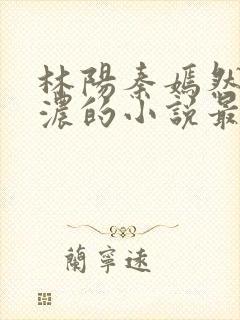 林陽秦嫣然
濃的小說最
蘭寧遠